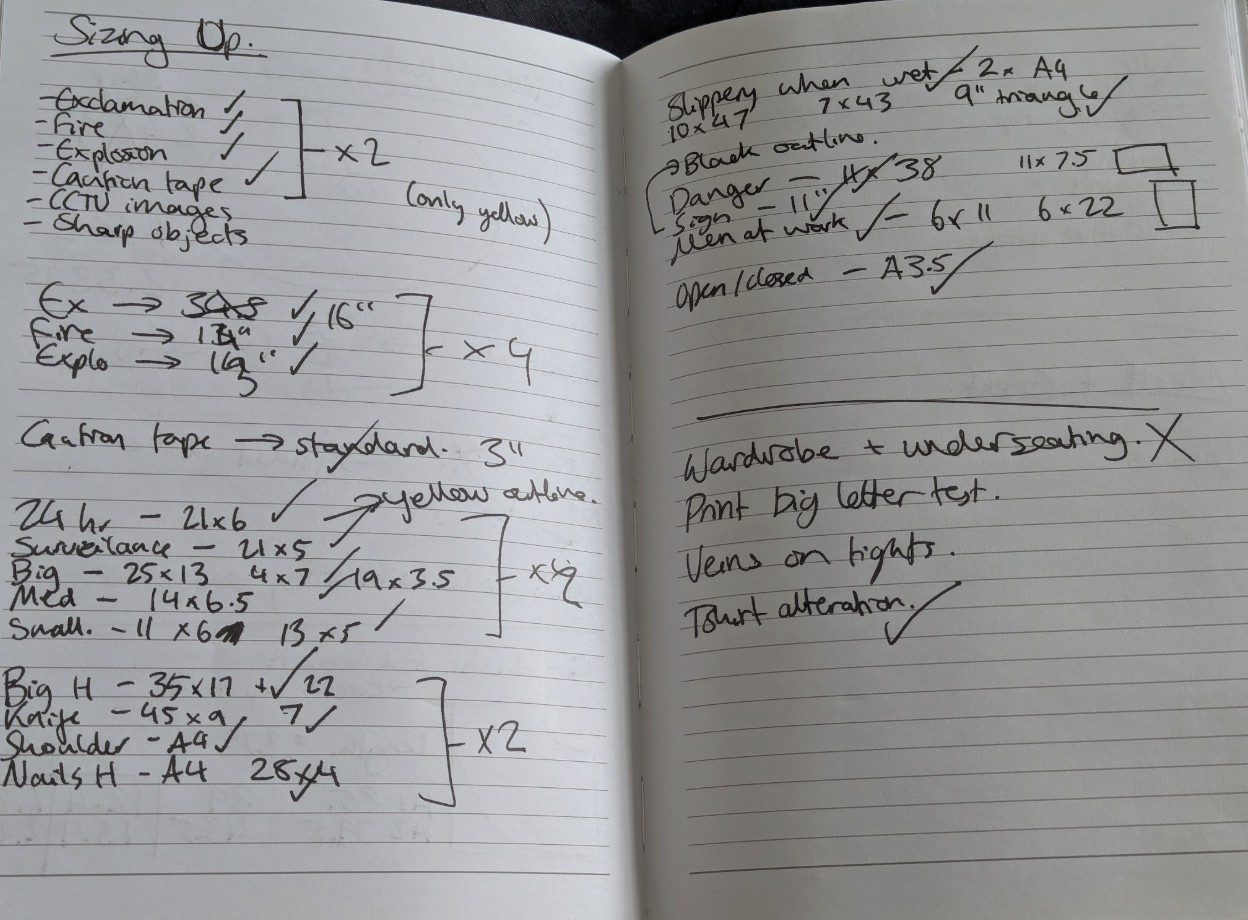 Sizing Up.
- Exclamation ✓
- Fire ✓
- Explosion ✓
- Caution tape ✓
- CCTV images
- Sharp objects
- x2
(only yellow)
Ex → ✓ 16"
Fire → ✓
Explo → ✓
- x 4
Caution tape → standard. 3"
24 hr - 21x6 ✓ → yellow outline.
Surveilance - 21x5 ✓
Big - 25x13 4x7 ✓ 19x3.5
Med - 14x6.5 ✓
Small. - 11 x6 13 x5 ✓
Big H - 35x17 + ✓ 22
Knife - 45x9 ✓ 7 ✓
Shoulder - A4 ✓
Nails H - A4 28x4 ✓
- x2
Slippery when wet ✓ - 2x A4
10x47 7x43 9" triangle ✓
→ Black outline.
Danger - 11x38 11x7.5
Sign - 11" ✓
Men at work ✓ - 6x11 6x22
Open/closed - A3.5 ✓
Wardrobe + underseating. X
Print big letter test.
Veins on tights.
Tshirt alteration. ✓